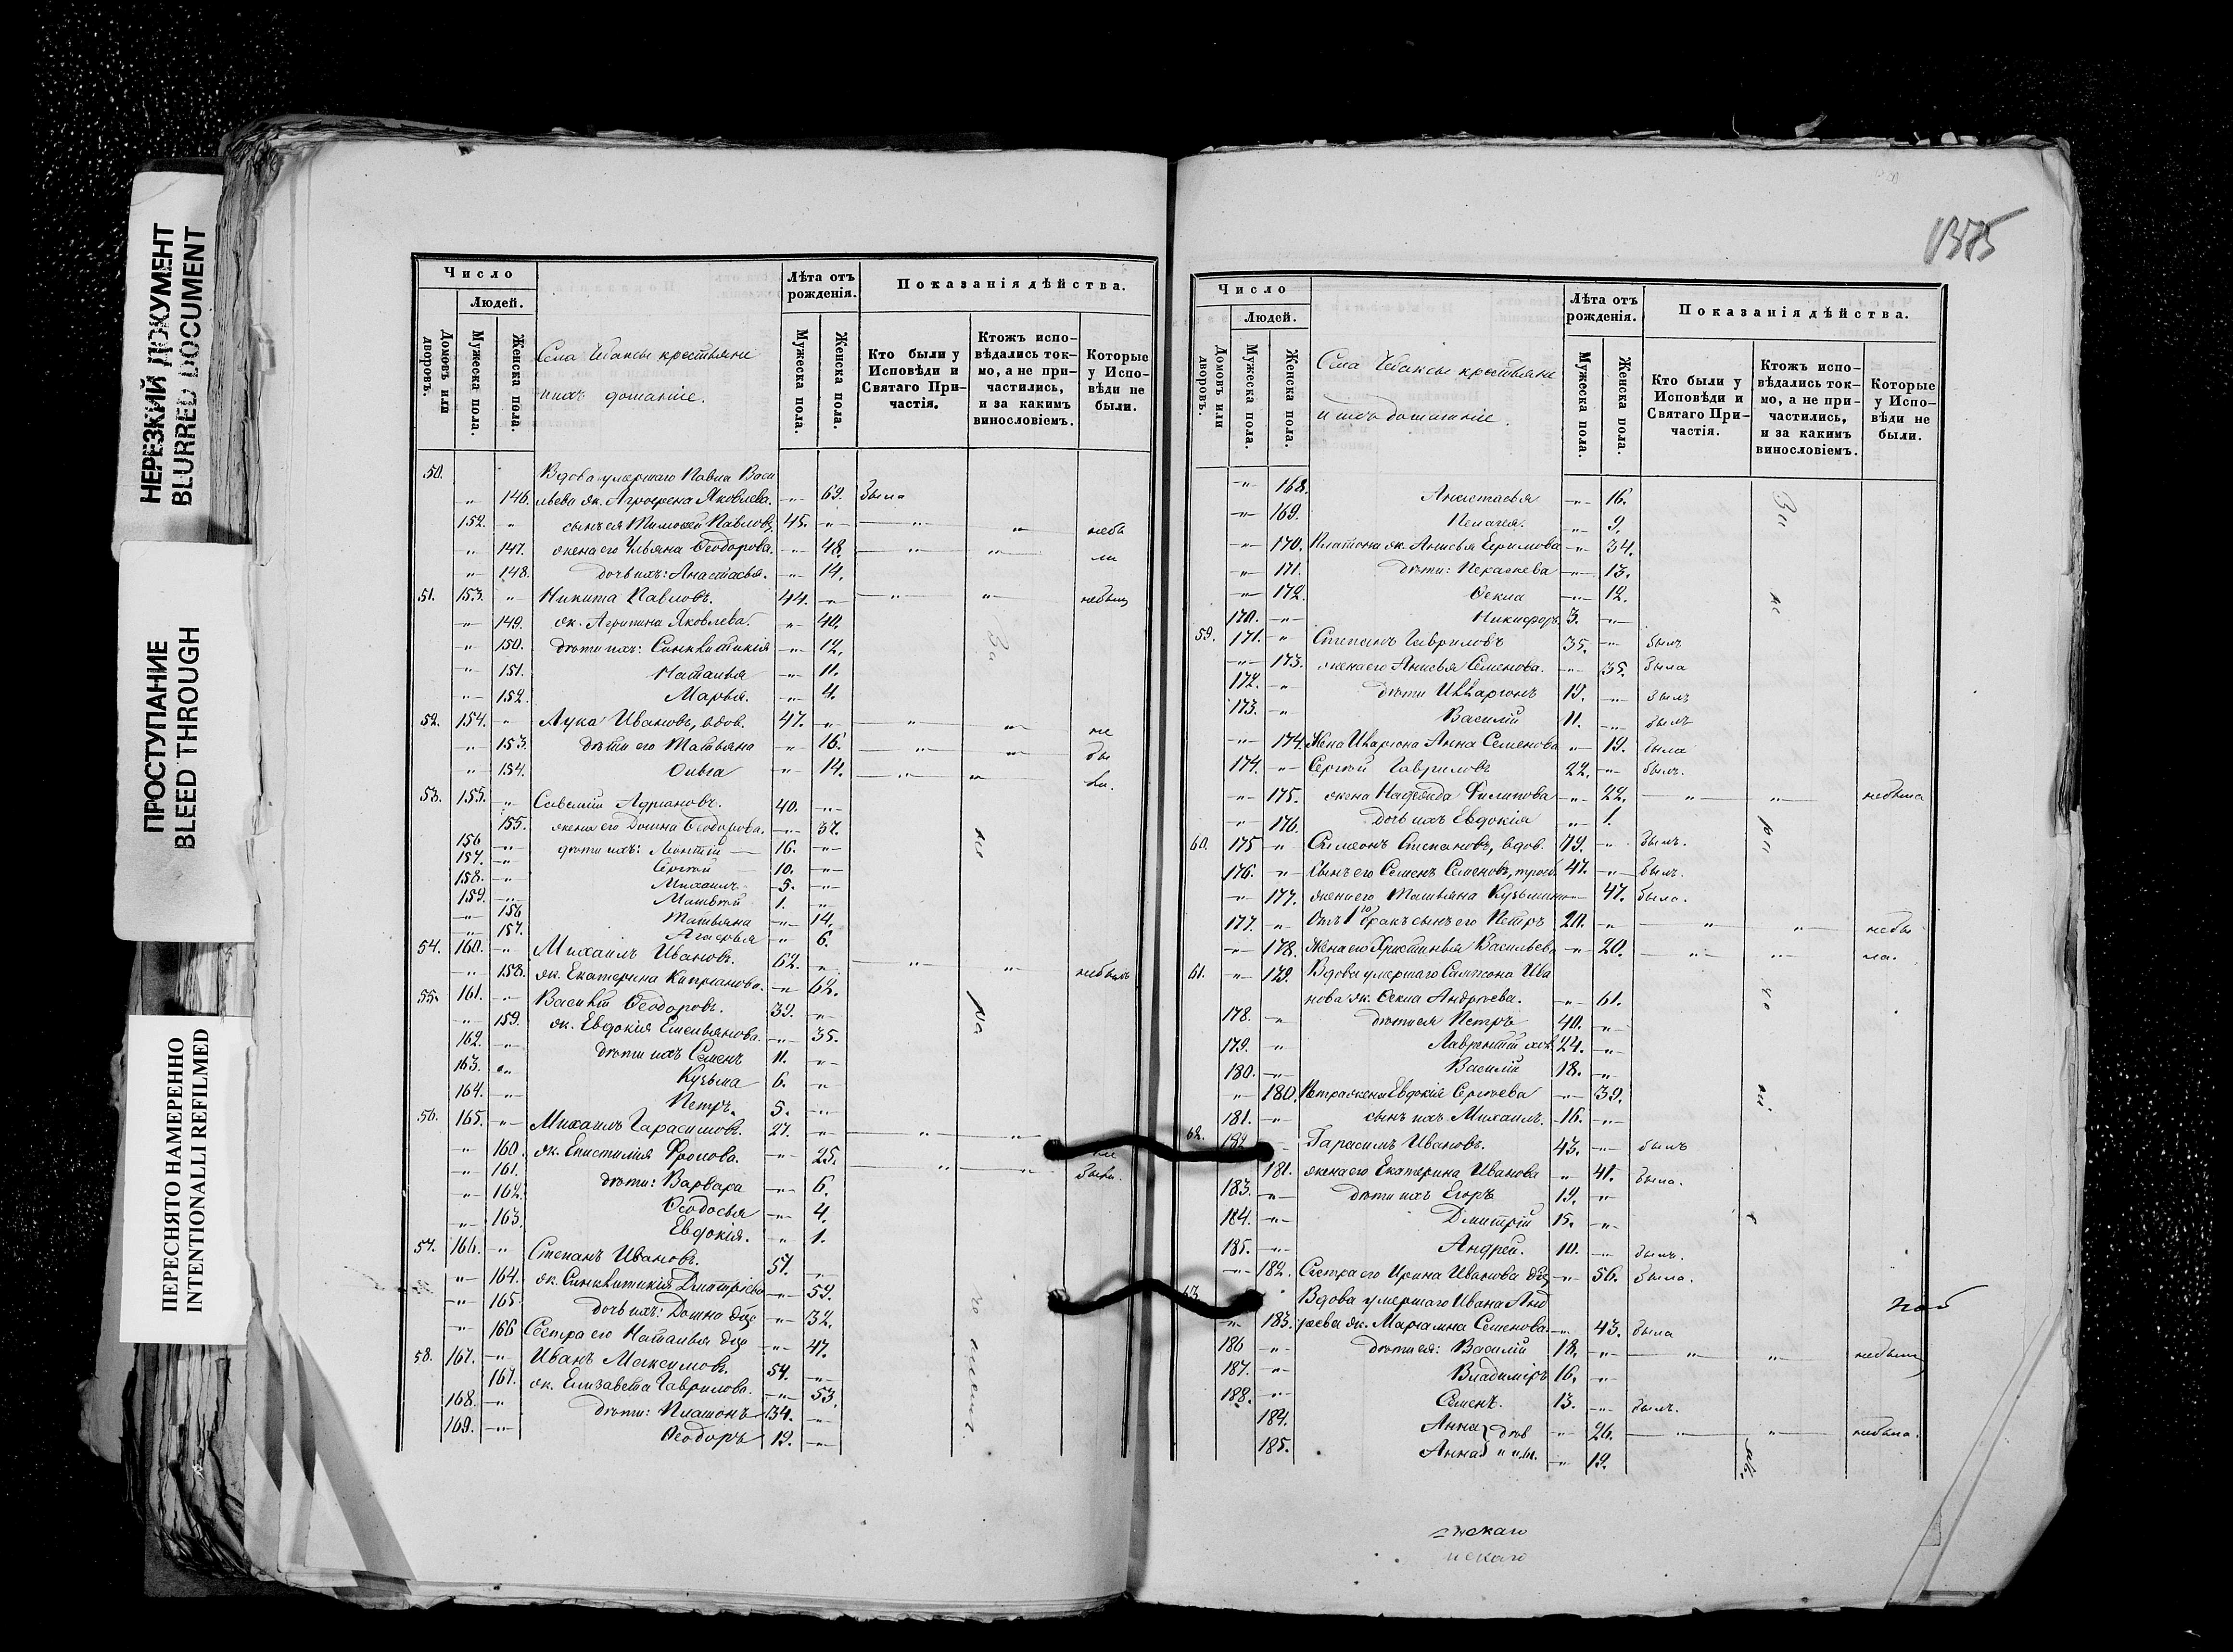 НЕРЕЗКИЙ ДОКУМЕНТ
BLURRED DOCUMENT
ПРОСТУПАНИЕ
BLEED THROUGH
ПЕРЕСНЯТО НАМЕРЕННО
INTENTIONALLI REFILMED
Число
Людей.
Домовъ или дворовъ.
Мужеска пола.
Женска пола.
крестьяне
ихъ домашніе.
Лѣта отъ рожденія.
Мужеска пола.
Женска пола.
Показанія дѣйства.
Кто были у Исповѣди и Святаго Причастія.
Ктожъ исповѣдались токмо, а не причастились, и за какимъ винословіемъ.
Которые у Исповѣди не были.
50. Вдова умершаго Павла Васи
-"- 146. льева ж. Агрофена Яковлева. -"- 69. была
152. " сынъ ея Тимофей Павловъ 45. -"- " " небы
-"- 147. жена его Ульяна Ѳеодорова. -"- 48. " " ли
-"- 148. дочь ихъ: Анастасья. -"- 14.
51. 153. " Никита Павловъ. 44. -"- " "
-"- 149. ж. Агрипина Яковлева. -"- 40.
-"- 150. дѣти ихъ: Синклитикія -"- 12.
-"- 151. Наталья -"- 11.
-"- 152. Марья. -"- 4.
52. 154. " Лука Ивановъ, вдов. 47. -"- " " не
-"- 153. дѣти его Татьяна -"- 16. " " бы
-"- 154. Ольга -"- 14. " " ли.
53. 155. -"- Савелій Адріановъ. 40. -"-
155. жена его Домна Ѳеодорова. -"- 37.
156 -"- дѣти ихъ: Леонтій 16. -"-
157. -"- Сергѣй 10. -"-
158. -"- Михаилъ 5. -"-
159. -"- Матвѣй 1. -"-
-"- 156 Татьяна -"- 14.
-"- 157. Агафья -"- 6.
54. 160. -"- Михаилъ Ивановъ. 62. -"- " " небылъ
-"- 158. ж. Екатерина Капріанова. -"- 62.
55. 161. -"- Василій Ѳеодоровъ. 39. -"-
-"- 159. ж. Евдокія Емельянова. -"- 35.
162. -"- дѣти ихъ Семенъ 11. -"-
163. -"- Кузьма 6. -"-
164. -"- Петръ. 5. -"-
56. 165. -"- Михаилъ Гарасимовъ. 27. -"- " "
-"- 160. ж. Епистимія Фролова. -"- 25.
-"- 161. дѣти: Варвара -"- 6. " " были.
-"- 162. Ѳеодосья -"- 4.
-"- 163. Евдокія. -"- 1.
57. 166. " Степанъ Ивановъ. 57. -"-
-"- 164. ж. Синклитикія Дмитріева -"- 59.
-"- 165. дочь ихъ: Домна дѣв -"- 32.
-"- 166 Сестра его Наталья дѣв -"- 47.
58. 167. -"- Иванъ Максимовъ. 54. -"-
167. ж. Елизавета Гаврилова. -"- 53.
168. -"- дѣти: Платонъ 34. -"-
169. -"- Ѳеодоръ 19. -"-
1375
Число
Людей.
Домовъ или дворовъ.
Мужеска пола.
Женска пола.
крестьяне
и ихъ домашніе.
Лѣта отъ рожденія.
Мужеска пола.
Женска пола.
Показанія дѣйства.
Кто были у Исповѣди и Святаго Причастія.
Ктожъ исповѣдались токмо, а не причастились, и за какимъ винословіемъ.
Которые у Исповѣди не были.
-"- 168. Анастасья -"- 16.
-"- 169. Пелагея. -"- 9.
-"- 170. Платона ж. Анисья Ефимова -"- 34.
-"- 171. дѣти: Параскева -"- 13.
-"- 172. Ѳекла -"- 12.
170. -"- Никифоръ 3. -"-
59. 171. -"- Степанъ Гавриловъ 35. -"- былъ
-"- 173. жена его Анисья Семенова. -"- 35. была
172. -"- дѣти Илларіонъ 19. -"- былъ
173. -"- Василій 11. -"- былъ
-"- 174. Жена Иларіона Анна Семенова -"- 19. была
174. -"- Сергѣй Гавриловъ 22. -"- былъ.
-"- 175. жена Надежда Филипова -"- 22. " " небыла
-"- 176. дочь ихъ Евдокія -"- 1.
60. 175 -"- Симеонъ Степановъ, вдов. 79. -"- былъ.
176. -"- Сынъ его Семенъ Семеновъ, 47. -"- былъ.
-"- 177. жена его Татьяна Кузьмина -"- 47. была.
177. -"- Отъ 1го бракъ сынъ его Петръ 20. -"- " " небы
-"- 178. Жена его Христинья Васильева -"- 20. " " ла.
61. -"- 179. Вдова умершаго Самсона Ива
нова ж. Ѳекла Андреева. -"- 61.
178. -"- дѣти ея Петръ 40. -"-
179. -"- Лаврентій хол. 24. -"-
180. -"- Василій 18. -"-
-"- 180. Петра жена Евдокія Сергѣева -"- 39.
181. -"- сынъ ихъ Михаилъ. 16. -"-
62. 182 -"- Гарасимъ Ивановъ. 43. -"- былъ
181. жена его Екатерина Иванова -"- 41. была.
183. -"- дѣти ихъ Егоръ 19. -"-
184. -"- Дмитрій 15. -"-
185. -"- Андрей. 10. -"- былъ.
-"- 182. Сестра его Ирина Иванова дѣв -"- 56. была.
63. Вдова умершаго Ивана Анд
-"- 183. реева ж. Маріамна Семенова. -"- 43. была
186 -"- дѣти ея: Василій 18. -"- " "
187. -"- Владиміръ 16. -"-
188. -"- Семенъ. 13. -"- былъ.
184. Анна } дѣв -"- 26. " " небыла.
185. Анна -"- 19.